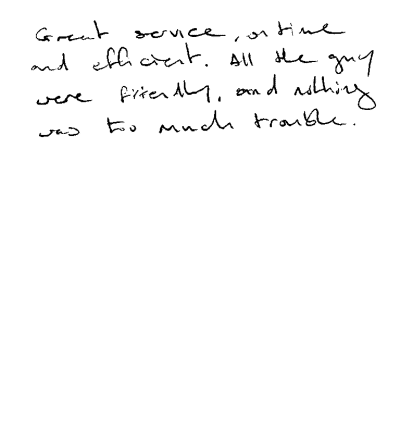 Great service, on time
and efficient. All the guys
were friendly, and nothing
was too much trouble.